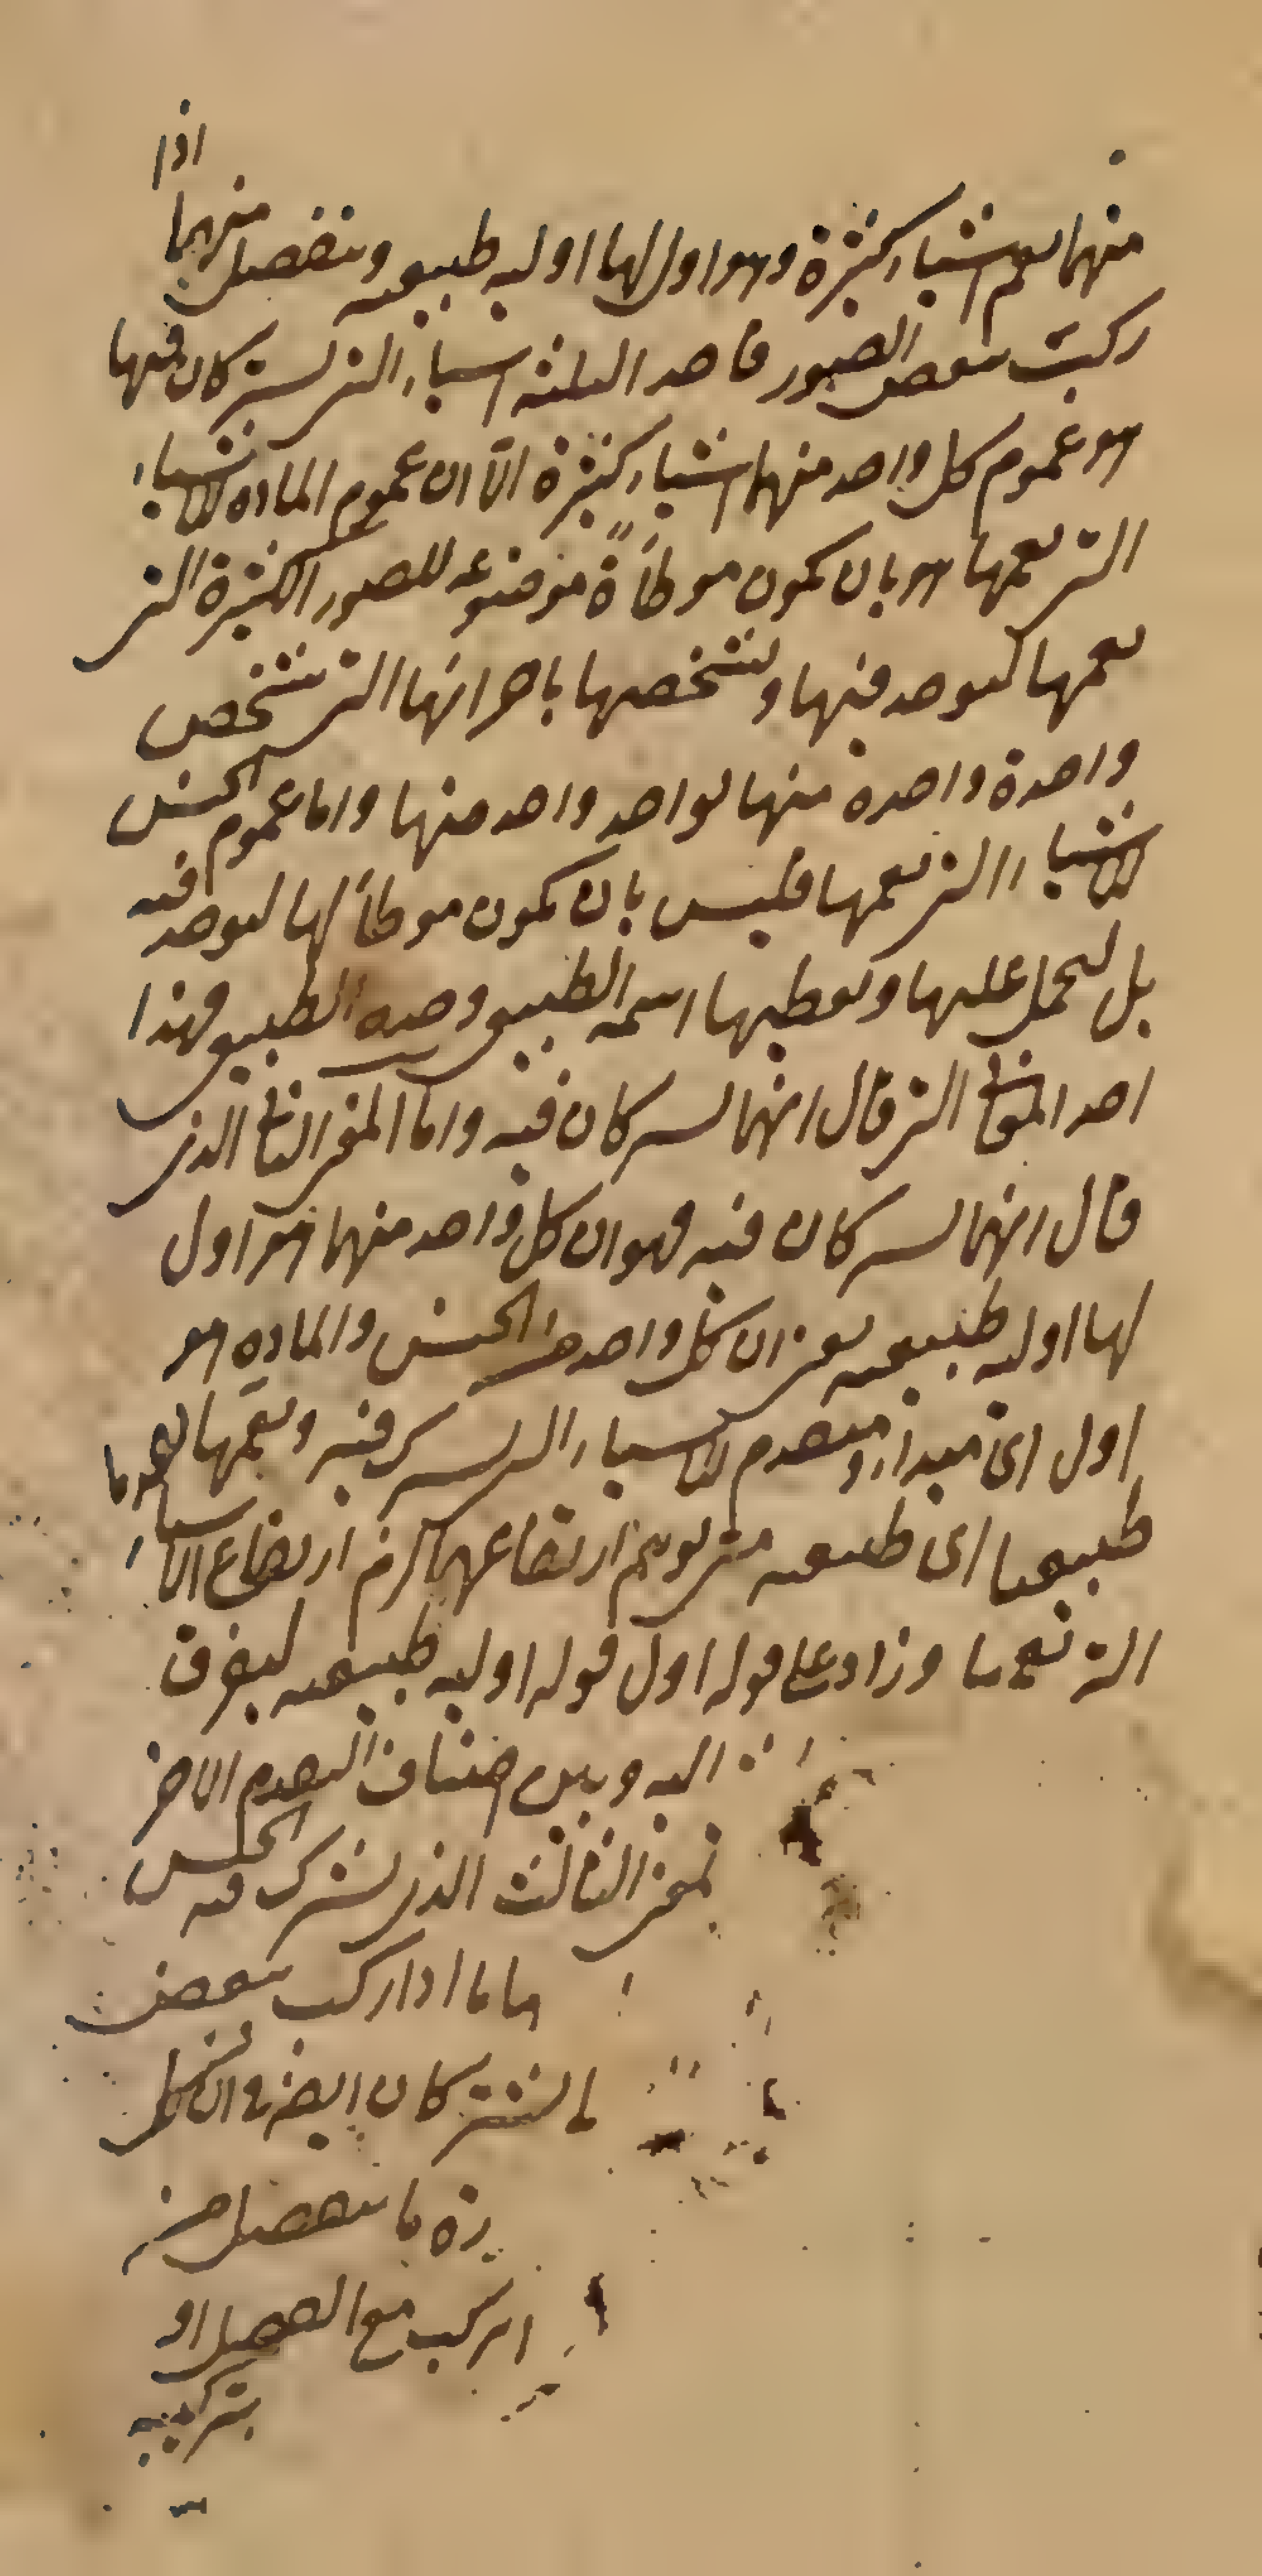 اذا
منهما يعم اشياء كثيرة وهو اول لها اولية طبيعية وينفصل منهما
ركبت ببعض الصور فاحد الثلثة اشياء التي يشتركان فيها
هو عموم كل واحد منهما اشياء كثيرة الّا ان عموم المادة للاشياء
التي تعمها هو بان يكون موطأةً موضوعة للصور الكثيرة التي
تعمها ليوجد فيها وتشخصها باجزائها التي تشخص
واحدة واحدة منها لواحد واحد منها واما عموم الجنس
للاشياء التي يعمها فليس بان يكون موطأ لها ليوجد فيه
بل ليحمل عليها ويعطيها اسمه الطبيعي وحده الطبيعي فهذا
احد المعاني التي قال انهما يشتركان فيه واما المعنى الثاني الذي
قال انهما يشتركان فيه فهو ان كل واحد منهما هو اول
لها اولية طبيعية يعني ان كل واحد من الجنس والمادة هو
اول اى مبدأ ومتقدم للاشياء التي يشترك فيه ويعمها تقدما
طبيعيا اى طبيعية متى توهم ارتفاعهما لزم ارتفاع الاشياء
التي تعمها وزاد على قوله اول قوله اولية طبيعية ليفرق
اليه وبين اصناف التقدم الاخر
لمعنى الثالث الذي يشترك فيه الجنس
هاما اذا ركب ببعض
ما يشتركان ايضا في ان كل
يره بما ينفصل منه
اتركب مع الفصل او
بتركيبه